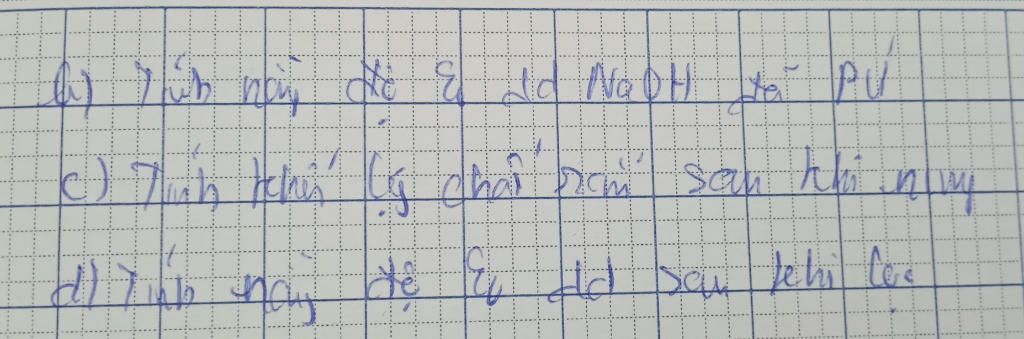 b) Tính nồng độ % dd NaOH đã PƯ
c) Tính khối lg chất rắn sau khi nung
d) Tính nồng độ % dd sau khi lọc